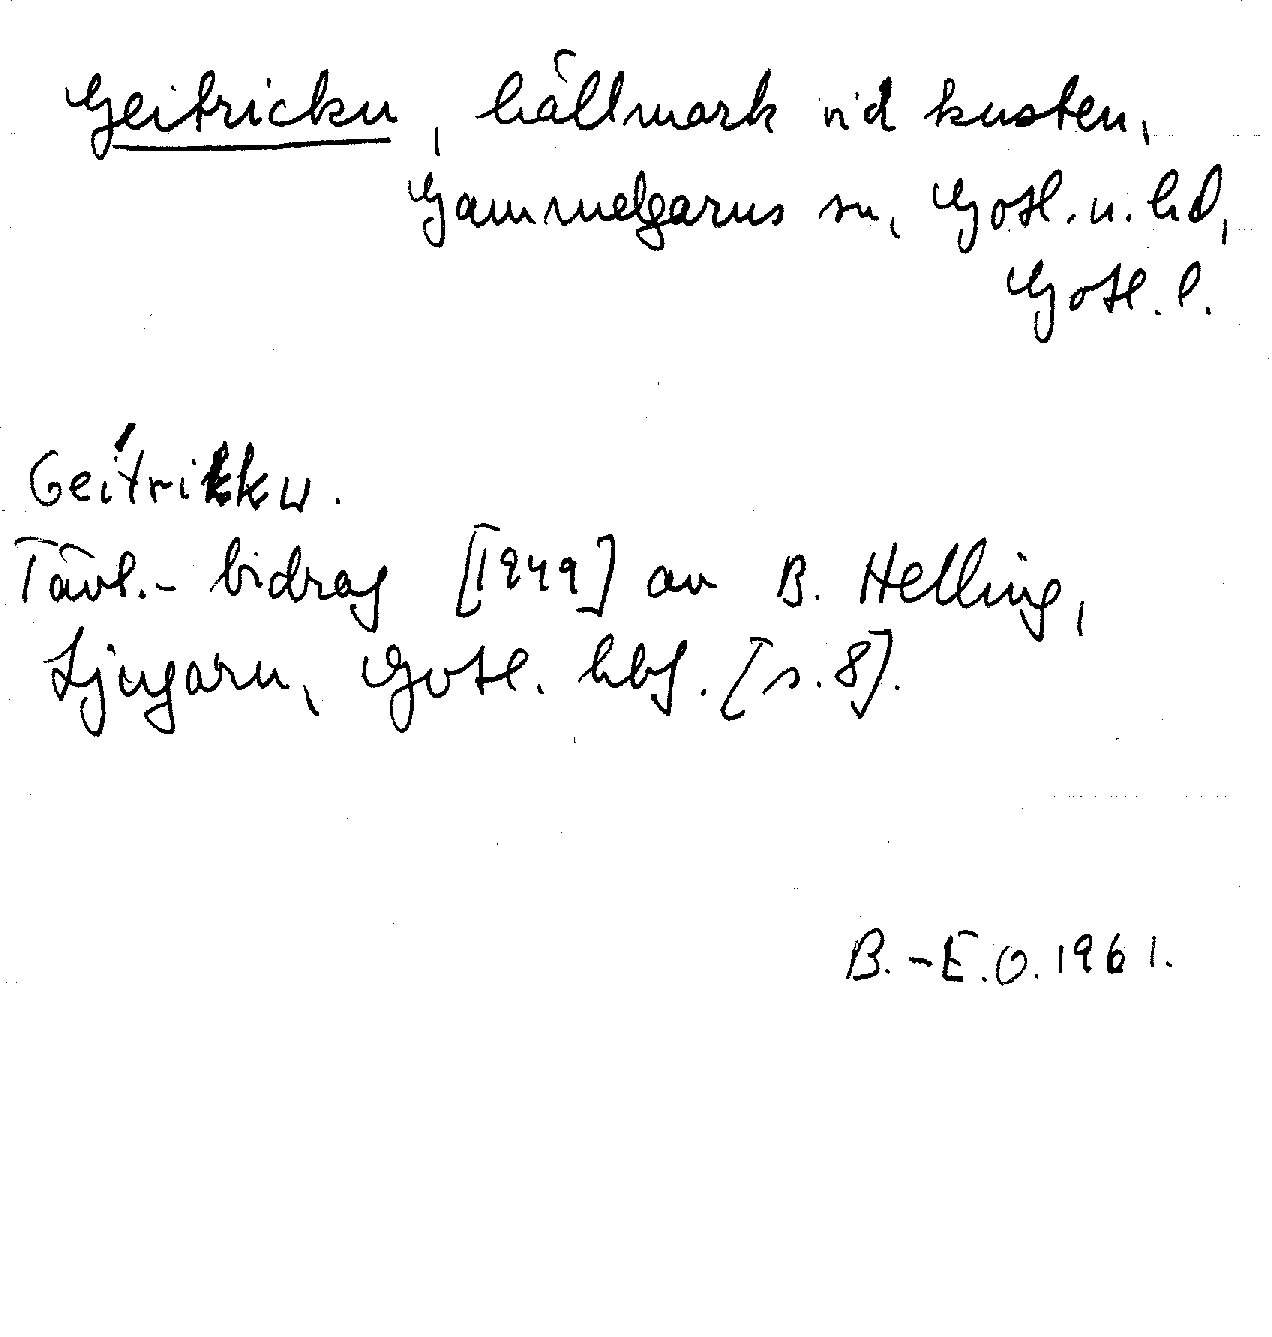 Geitricku, hällmark vid kusten,
Gammelgarns sn, Gotl. n. hd,
Gotl. l.
Geitrikku.
Tävl.- bidrag [1949] av B. Helling,
Ljugarn, Gotl. hbf. [s. 8].
B.-E.O. 1961.